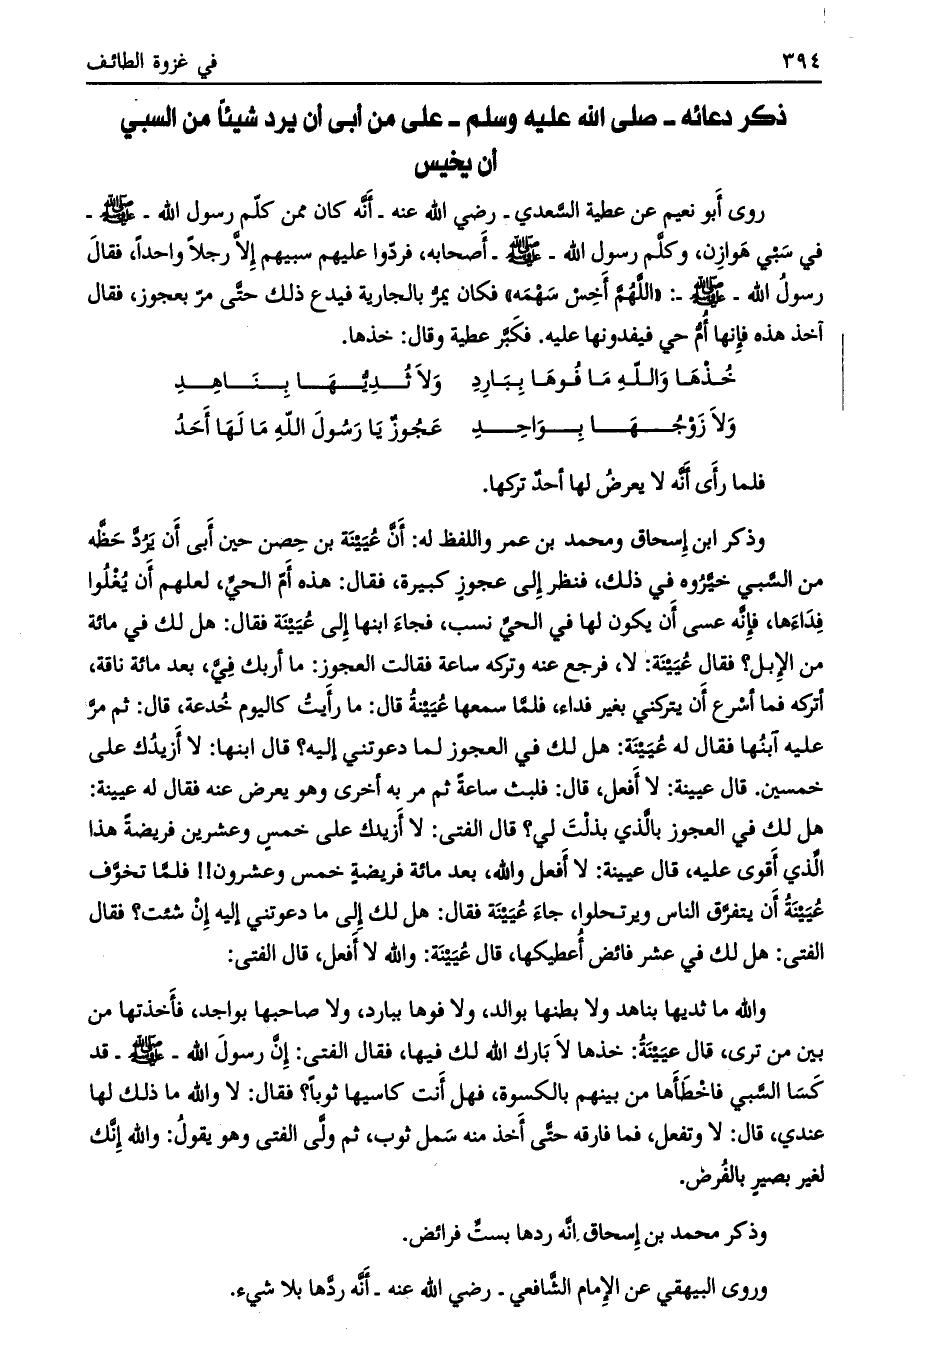 ٣٩٤ في غزوة الطائف
ذكر دعائه ـ صلى الله عليه وسلم ـ على من أبى أن يرد شيئاً من السبي
أن يخيس
روى أَبو نعيم عن عطية السَّعدي ـ رضي الله عنه ـ أَنَّه كان ممن كلّم رسول الله ـ ﷺ ـ
في سَبْي هَوازِن، وكلَّم رسول الله ـ ﷺ ـ أَصحابه، فردّوا عليهم سبيهم إِلاَّ رجلاً واحداً، فقالَ
رسولُ الله ـ ﷺ ـ: «اللَّهُمَّ أَخِسْ سَهْمَه» فكان يمرُّ بالجارية فيدع ذلك حتَّى مرّ بعجوز، فقال
آخذ هذه فإِنها أُمُّ حي فيفدونها عليه. فكَبَّر عطية وقال: خذها.
خُذْهَا وَاللهِ مَا فُوهَا بِبَارِدِ وَلاَ ثُدِيُّهَا بِنَاهِدِ
وَلاَ زَوْجُهَا بِوَاحِدِ عَجُوزٌ يَا رَسُولَ اللهِ مَا لَهَا أَحَدُ
فلما رأَى أَنَّه لا يعرضُ لها أحدٌ تركها.
وذكر ابن إِسحاق ومحمد بن عمر واللفظ له: أَنَّ عُيَيْنَة بن حِصن حين أَبى أَن يَرُدَّ حَظَّه
من السَّبي خيَّرُوه في ذلك، فنظر إِلى عجوزٍ كبيرة، فقال: هذه أَمّ الحيِّ، لعلهم أَن يُغْلُوا
فِدَاءَها، فإِنَّه عسى أَن يكون لها في الحيِّ نسب، فجاءَ ابنها إِلى عُيَيْنَة فقال: هل لك في مائة
من الإِبل؟ فقال عُيَيْنَة: لا، فرجع عنه وتركه ساعة فقالت العجوز: ما أربك فِيَّ، بعد مائة ناقة،
أتركه فما أسْرع أَن يتركني بغير فداء، فلمَّا سمعها عُيَيْنةُ قال: ما رأَيتُ كاليوم خُدعة، قال: ثم مرَّ
عليه آبنُها فقال له عُيَيْنَة: هل لك في العجوز لما دعوتني إليه؟ قال ابنها: لا أَزيدُك على
خمسين. قال عيينة: لا أَفعل، قال: فلبث ساعةً ثم مر به أخرى وهو يعرض عنه فقال له عيينة:
هل لك في العجوز بالَّذي بذلْتَ لي؟ قال الفتى: لا أَزيدك على خمسٍ وعشرين فريضةً هذا
الَّذي أَقوى عليه، قال عيينة: لا أَفعل والله، بعد مائة فريضةٍ خمس وعشرون!! فلمَّا تخوَّف
عُيَيْنَةُ أَن يتفرَّق الناس ويرتحلوا، جاءَ عُيَيْنَة فقال: هل لك إِلى ما دعوتني إليه إِنْ شئت؟ فقال
الفتى: هل لك في عشر فرائض أُعطيكها، قال عُيَيْنَة: والله لا أَفعل، قال الفتى:
والله ما ثديها بناهد ولا بطنها بوالد، ولا فوها ببارد، ولا صاحبها بواجد، فأَخذتها من
بين من ترى، قال عيَيْنَةُ: خذها لاَ بَارك الله لك فيها، فقال الفتى: إِنَّ رسولَ الله ـ ﷺ ـ قد
كَسَا السَّبي فاخْطَأَها من بينهم بالكسوة، فهل أَنت كاسيها ثوباً؟ فقال: لا والله ما ذلك لها
عندي، قال: لا وتفعل، فما فارقه حتَّى أَخذ منه سَمل ثوب، ثم ولَّى الفتى وهو يقولُ: والله إِنَّك
لغير بصيرٍ بالفُرض.
وذكر محمد بن إِسحاق إنَّه ردها بستٌ فرائض.
وروى البيهقي عن الإِمام الشَّافعي ـ رضي الله عنه ـ أَنَّه ردَّها بلا شيء.